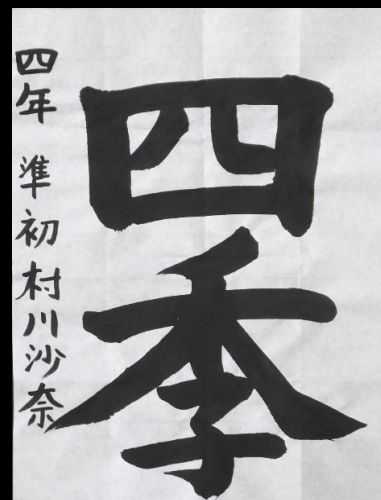 四季
四年 準初 村川沙奈